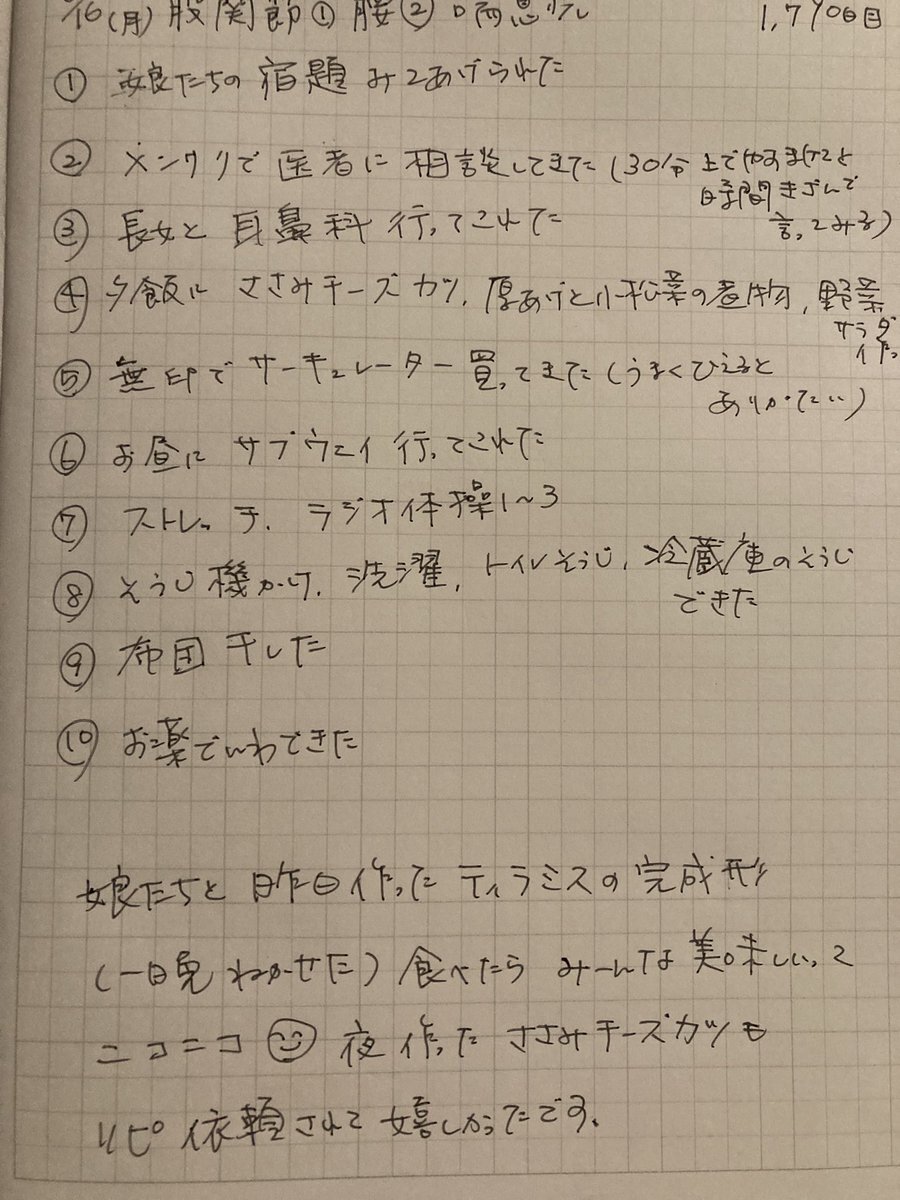 /16(月) 股関節① 腰② 喘息 1,790日目
① 娘たちの宿題みてあげられた
② メンクリで医者に相談してきた(30分上でやすまないと
時間きざんで
言ってみる)
③ 長女と耳鼻科行ってこれた
④ 夕飯に ささみチーズカツ、厚あげと小松菜の煮物、野菜
サラダ
作っ
⑤ 無印でサーキュレーター買ってきた(うまくひえると
ありがたい)
⑥ お昼にサブウェイ行ってこれた
⑦ ストレッチ、ラジオ体操1~3
⑧ そうじ機かけ、洗濯、トイレそうじ、冷蔵庫のそうじ
できた
⑨ 布団干した
⑩ お薬でいわできた
娘たちと昨日作ったティラミスの完成形
(一日晩ねかせた)食べたらみーんな美味しいって
ニコニコ 夜作ったささみチーズカツも
リピ依頼されて嬉しかったです。